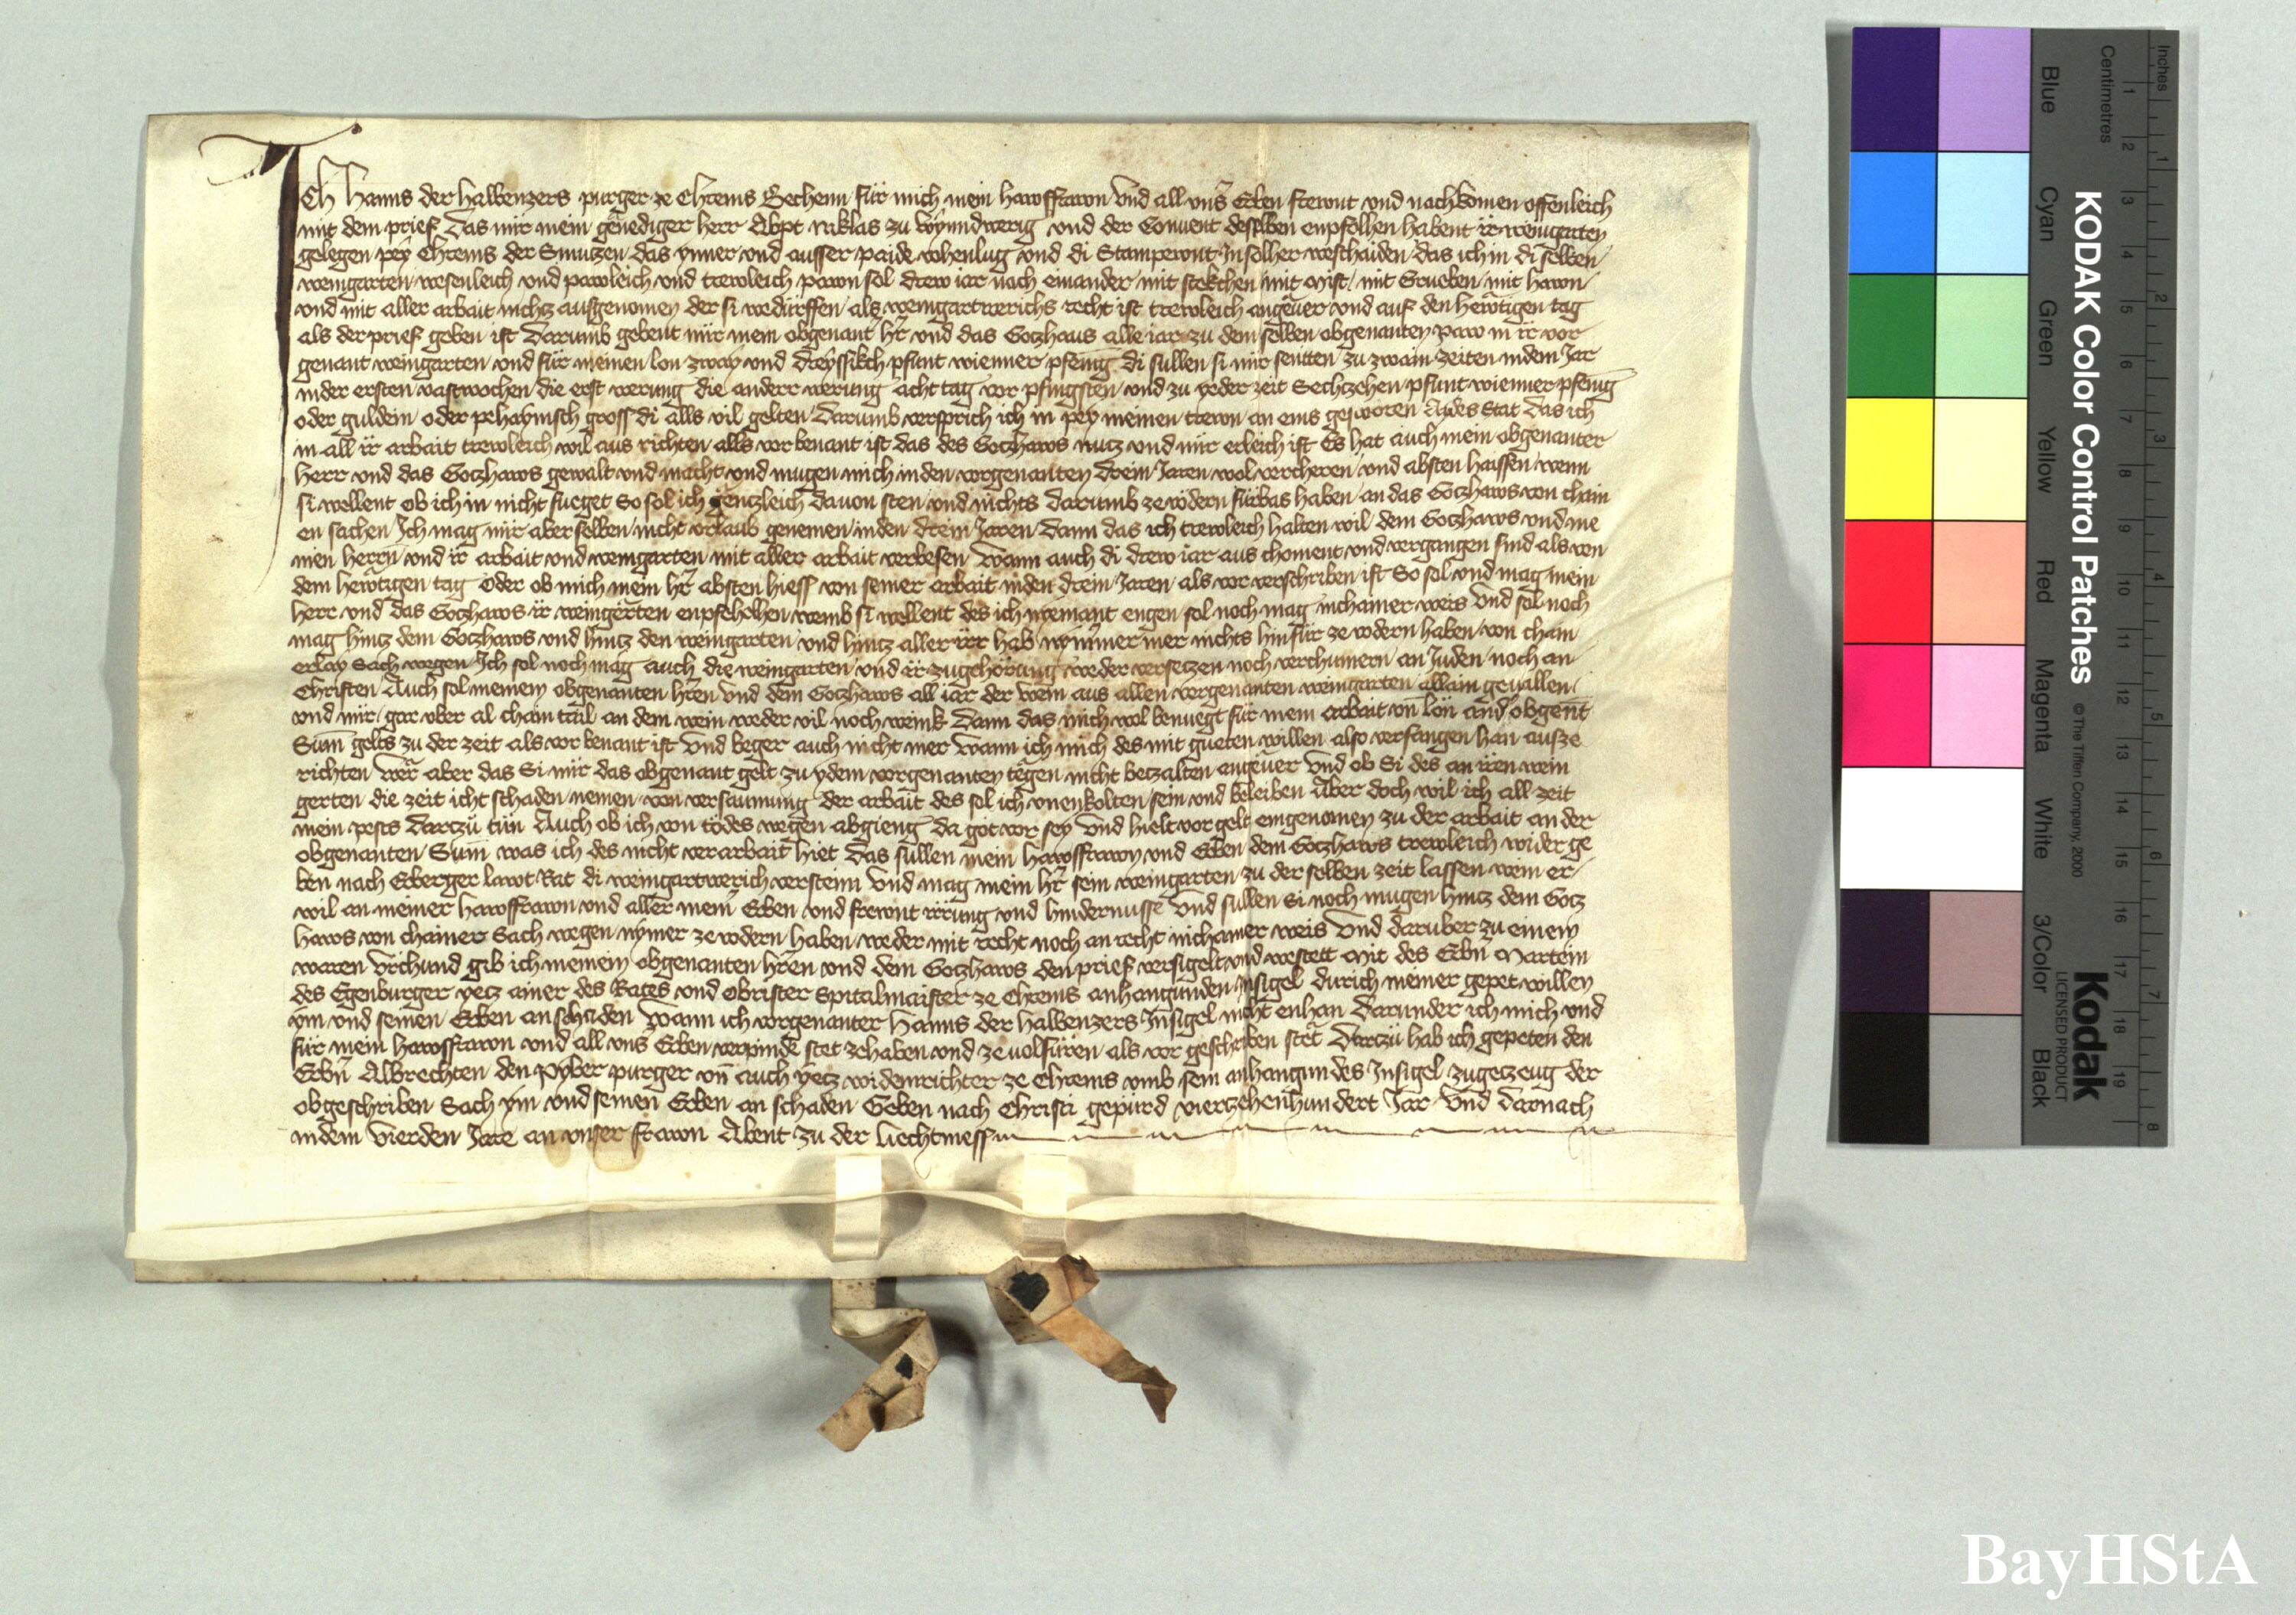 Ich Hanns der Halbenzers purger ze Chrems Vechenn für mich mein hawsfrawn vnd all vnser Erben frewnt vnd nachkomen offenleich
mit dem prief Das mir mein genediger herr Abpt Niklas zu und der Conuent desselben enpfolhen habent ir weingarten
gelegen pey Chrems der Smutzen das ynner vnd ausser paide vohenlug vnd di Stamperint In solher weschaiden das ich in di selben
weingarten wesenleich vnd pawleich vnd trewleich pawn sol drew iar nach einander mit stekchen mit mist mit Grueben mit hawn
vnd mit aller arbait nichtz aufgenomen der si wedürffen als weingartwerichs recht ist trewleich angeuer vnd auf den hewtigen tag
als der prief geben ist Darumb gebent mir mein obgenant hr vnd das Gotzhaus alle iar zu dem selben obgenanten paw in ir vor
genant weingarten vnd für meinen lon zway vnd dreyssikch pfunt wienner pfenig di sullen si mir sentten zu zwain zeiten in dem Jar
in der ersten vastwochen die erst werung die anderr werung acht tag vor pfingsten vnd zu yeder zeit Sechtzehen pfunt wienner pfenig
oder guldein oder pehaymisch gross di alls vil gelten Darumb versprich ich in pey meinen trewn an eins gesworen Aydes stat das ich
in all ir arbait trewleich wil aus richten alls vor benant ist das des Gotzhaws nutz vnd mir erleich ist Es hat auch mein obgenanter
herr vnd das Gotzhaws gewalt vnd macht vnd mugen mich in den vorgenanten drein Jaren wol vercheren vnd absten haissen wenn
si wellent ob ich in nicht fueget So sol ich gentzleich dauon sten vnd nichts darumb ze vodern fürbas haben an das Gotzhaws von chain
en sachen Ich mag mir aber selben nicht vrlaub genemen in den drein Jaren dann das ich trewleich halten wil dem Gotzhaws vnd me
nen herrn vnd ir arbait vnd weingarten mit aller arbait verbesen Wann auch di drew iar aus choment vnd vergangen sind als von
dem hewtigen tag Oder ob mich mein hr absten hiess von seiner arbait in den drein Jaren als vor verschriben ist So sol vnd mag mein
herr vnd das Gotzhaws ir weingerten enpfehelhen wemb si wellent des ich nyemant engen sol noch mag in chainer weis Vnd sol noch
mag hintz dem Gotzhaws vnd hintz den weingarten vnd hintz aller irr hab nymmer mer nichts hin für ze vodern haben von chain
erlay Sach wegen Ich sol noch mag auch die weingarten vnd ir zugehörung weder versetzen noch verchumern an Juden noch an
Christen Auch sol meinem obgenanten hren vnd dem Gotzhaws all iar der wein aus allen vorgenanten weingarten allain geuallen
vnd mir gar vber al chain tail an dem wein weder vil noch wenk Dann das mich wol benuegt für mein arbait vn lon obgent
Sum gelts zu der zeit als vor benant ist Vnd beger auch nicht mer wann ich mich des mit gueten willen also verfangen han ausze
richten Wer aber das Si mir das obgenant gelt zu ydem vorgenanten tegen nicht betzalten angeuer Vnd ob Si des an iren wein
gerten die zeit icht schaden nemen von versaumung der arbait des sol ich vnenkolten sein vnd beleiben Aber doch wil ich all zeit
mein pests dartzu tun Auch ob ich von todes wegen abgieng da got vor sey Vnd hielt vor gelt eingenomen zu der arbait an der
obgenanten Sum was ich des nicht verarbait hiet das sullen mein hawsfrawn vnd Erben dem Gotzhaws trewleich wider ge
ben nach Erberger lawt Rat di weingartwerich versteinn Vnd mag mein hr sein weingarten zu der selben zeit lassen wem er
wil an meiner hawsfrawn vnd aller mein Erben vnd frewnt irrung vnd hindernusse Vnd sullen si noch mugen hintz dem Gotz
haws von chainer Sach wegen nymer ze vodern haben weder mit recht noch an recht in chainer weis Vnd daruber zu einem
waren vrchund gib ich meinem obgenanten hren vnd dem Gotzhaws den prief versigelt vnd westett Mit des Erbn Martein
des Egenburger yetz ainer des Rates vnd obrister Spitalmaister ze Chrems anhangunden Insigel durich meiner gepet willen
ym vnd seinen Erben an schaden Wann ich vorgenanter Hanns der Halbenzers Insigel nicht enhan Darunder ich mich vnd
für mein hawsfrawn vnd all vns Erben verpinde stet ze haben vnd ze volfüren als vor geschriben stet Dartzu hab ich gepeten den
Erbn Albrechten den pyber purger vn auch yetz Judenrichter ze Chrems vmb sein anhangundes Insigel zu getzeug der
obgeschriben Sach ym vnd seinen Erben an schaden Geben nach Christi gepurd viertzehenhundert Jar Vnd darnach
in dem Vierden Jare an vnser frawn Abent zu der liechtmess
Inches
Centimetres
1 2 3 4 5 6 7 8
1 2 3 4 5 6 7 8 9 10 11 12 13 14 15 16 17 18 19
Blue Cyan Green Yellow Red Magenta White 3/Color Black
KODAK Color Control Patches © The Tiffen Company, 2000
Kodak
LICENSED PRODUCT
BayHStA